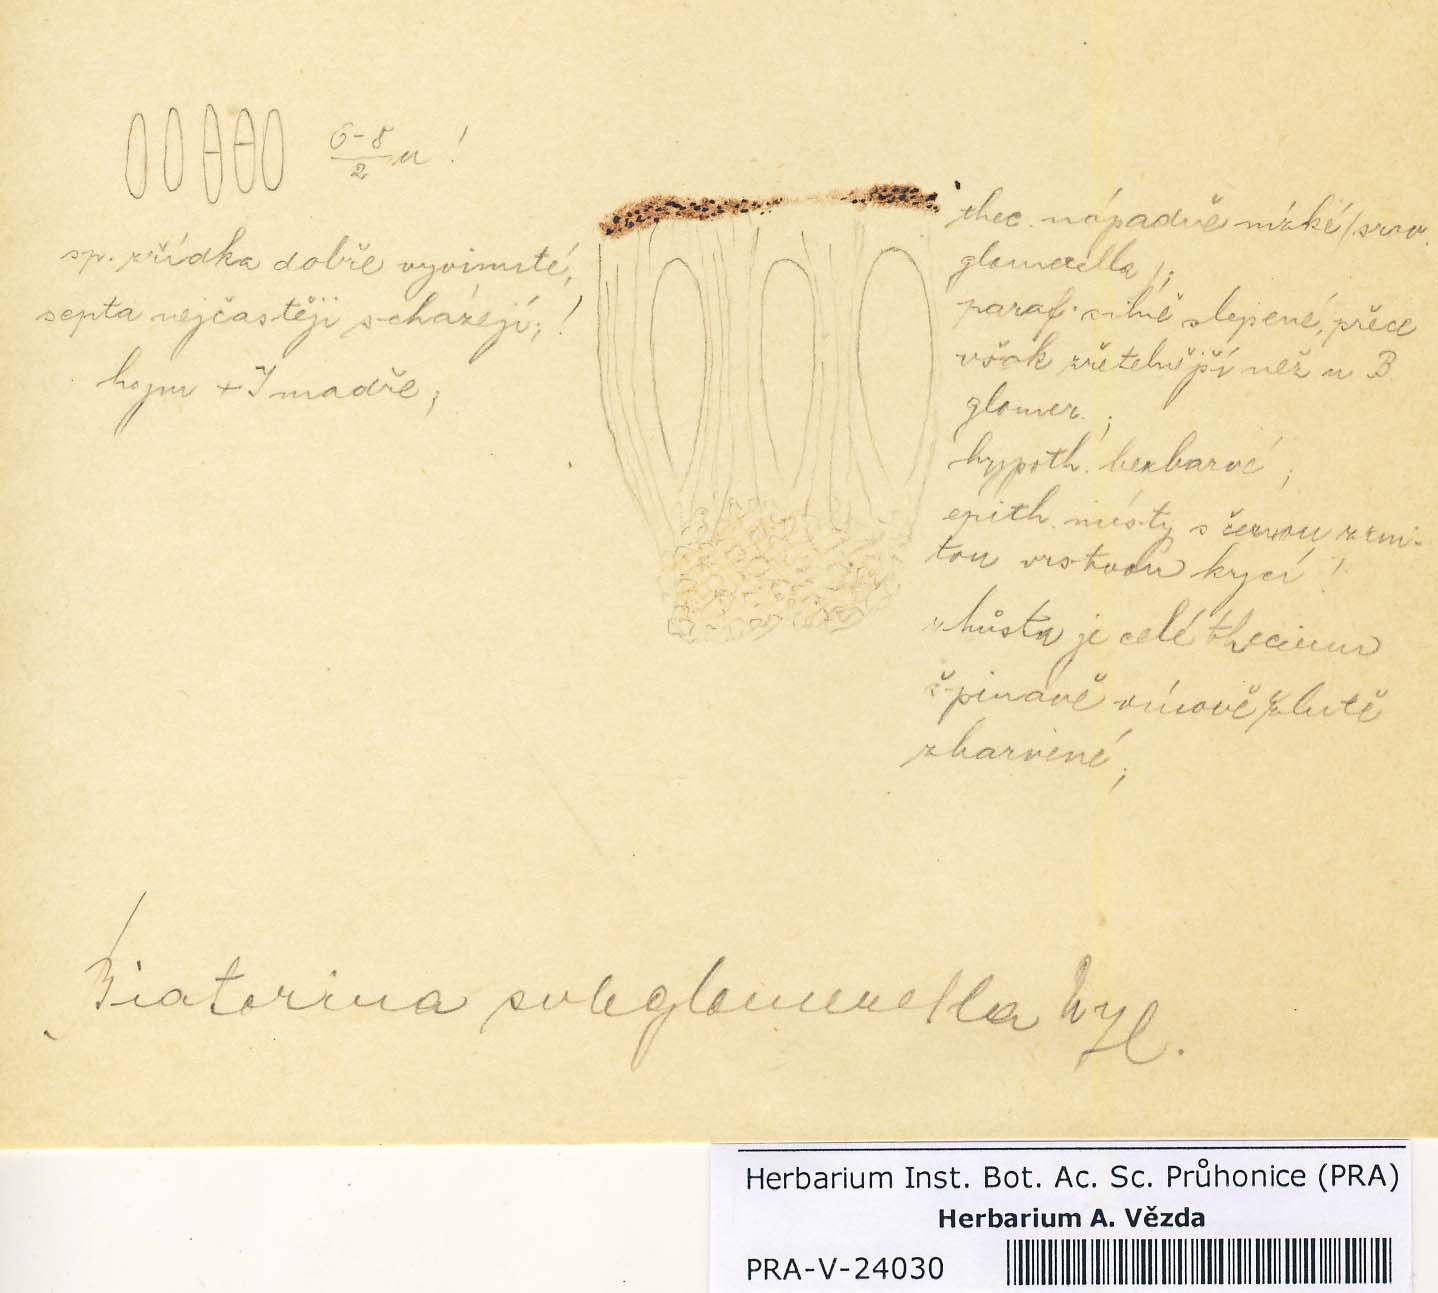 6-8
2 µ !
sp. zřídka dobře vyvinuté,
septa nejčastěji scházejí; !
hym + J modře;
thec. nápadně nízké /srov.
glomerella/;
paraf. silně slepené, přece
však zřetelnější než u B.
glomer.;
hypoth. bezbarvé;
epith. místy s černou zrni-
tou vrstvou krycí !
zhusta je celé thecium
špinavě vínově žlutě
zbarvené;
Biatorina subglomerella Nyl.
Herbarium Inst. Bot. Ac. Sc. Průhonice (PRA)
Herbarium A. Vězda
PRA-V-24030